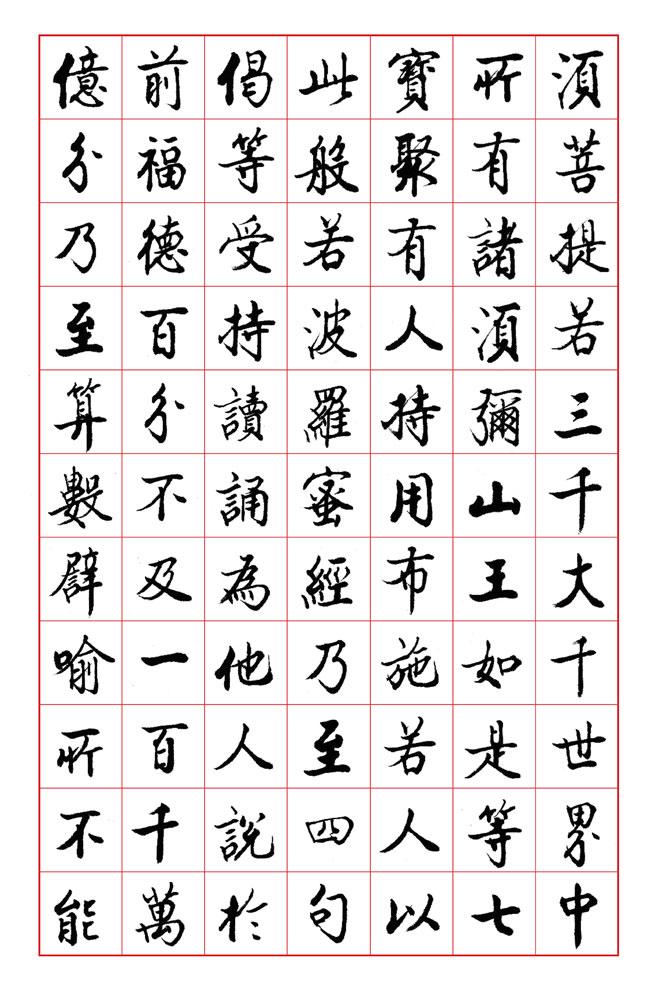 須菩提若三千大千世界中
所有諸須彌山王如是等七
寶聚有人持用布施若人以
此般若波羅蜜經乃至四句
偈等受持讀誦為他人說於
前福德百分不及一百千萬
億分乃至算數譬喻所不能